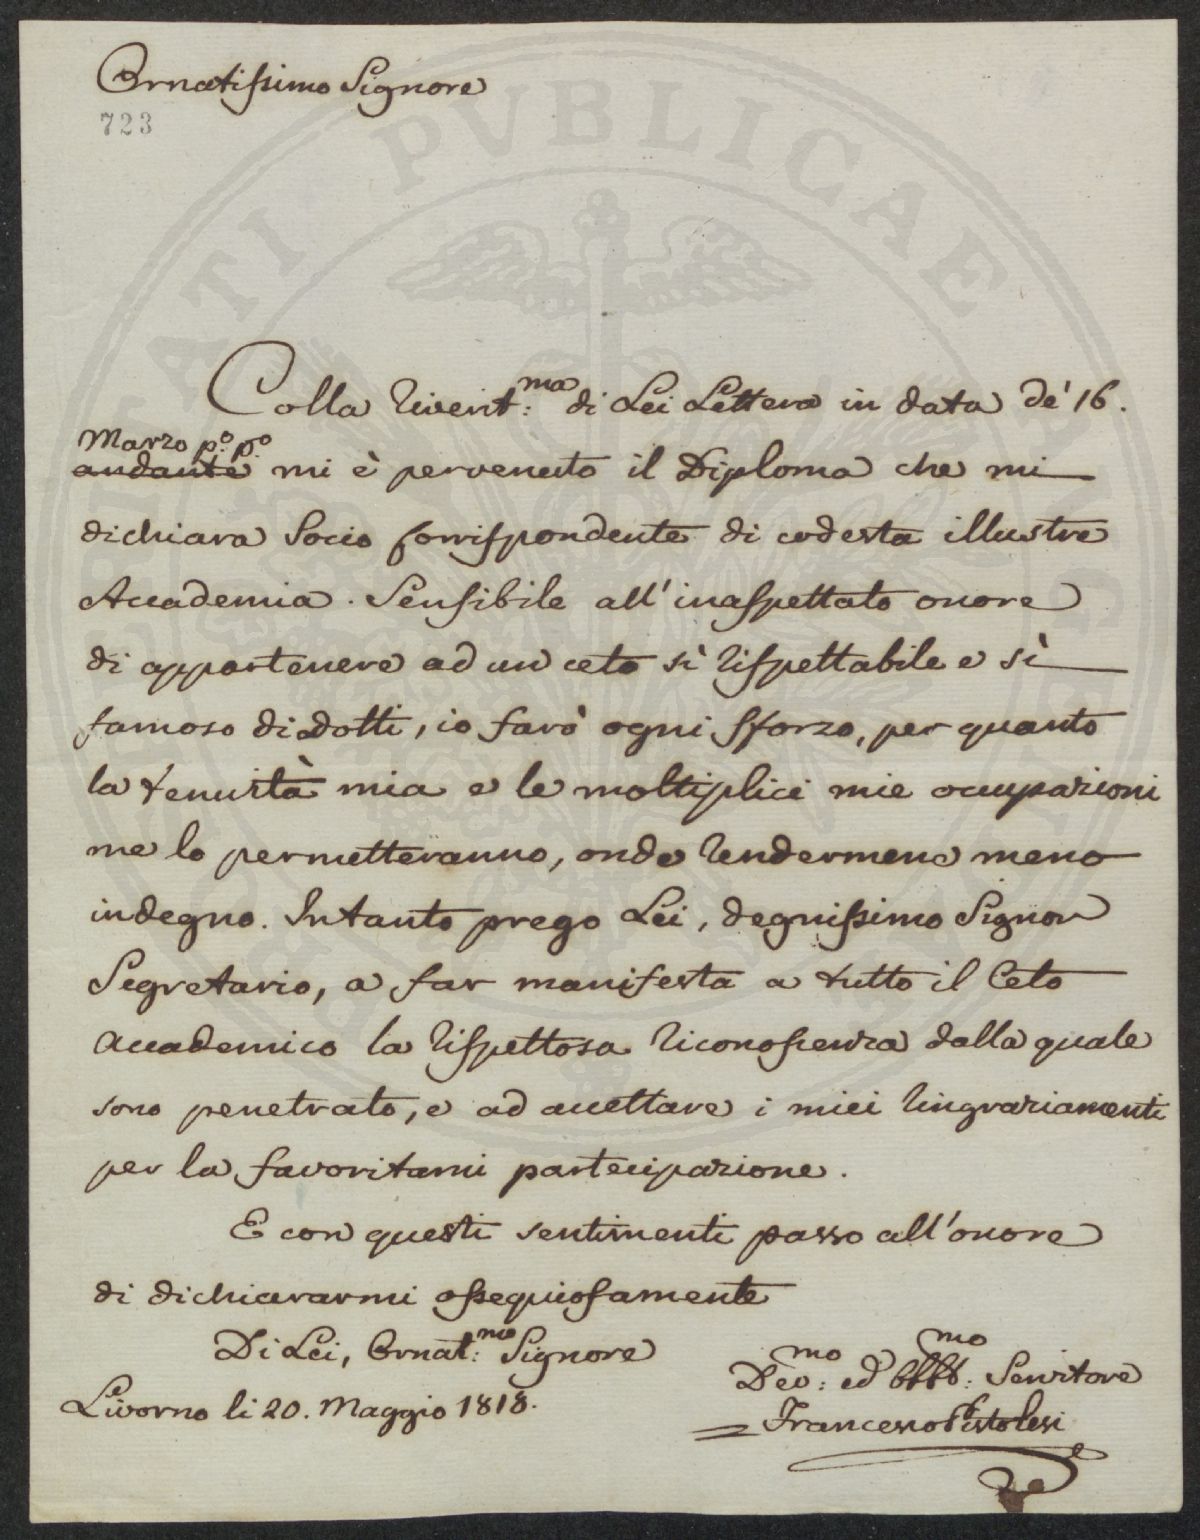 Ornatissimo Signore
723
Colla Riverit:ma di Lei Lettera in data de' 16.
Marzo p:o p:o
andante mi è pervenuto il Diploma che mi
dichiara Socio Corrispondente di codesta illustre
Accademia. Sensibile all'inaspettato onore
di appartenere ad un ceto sì rispettabile e sì
famoso di dotti, io farò ogni sforzo, per quanto
la tenuità mia e le moltiplici mie occupazioni
me lo permetteranno, onde rendermene meno
indegno. Intanto prego Lei, degnissimo Signor
Segretario, a far manifesta a tutto il Ceto
Accademico la rispettosa riconoscenza dalla quale
sono penetrato, e ad accettare i miei ringraziamenti
per la favoritami partecipazione.
E con questi sentimenti passo all'onore
di dichiararmi ossequiosamente
Di Lei, Ornat:mo Signore
Livorno li 20. Maggio 1818.
Dev:mo ed Obb:mo Servitore
Francesco Pistolesi